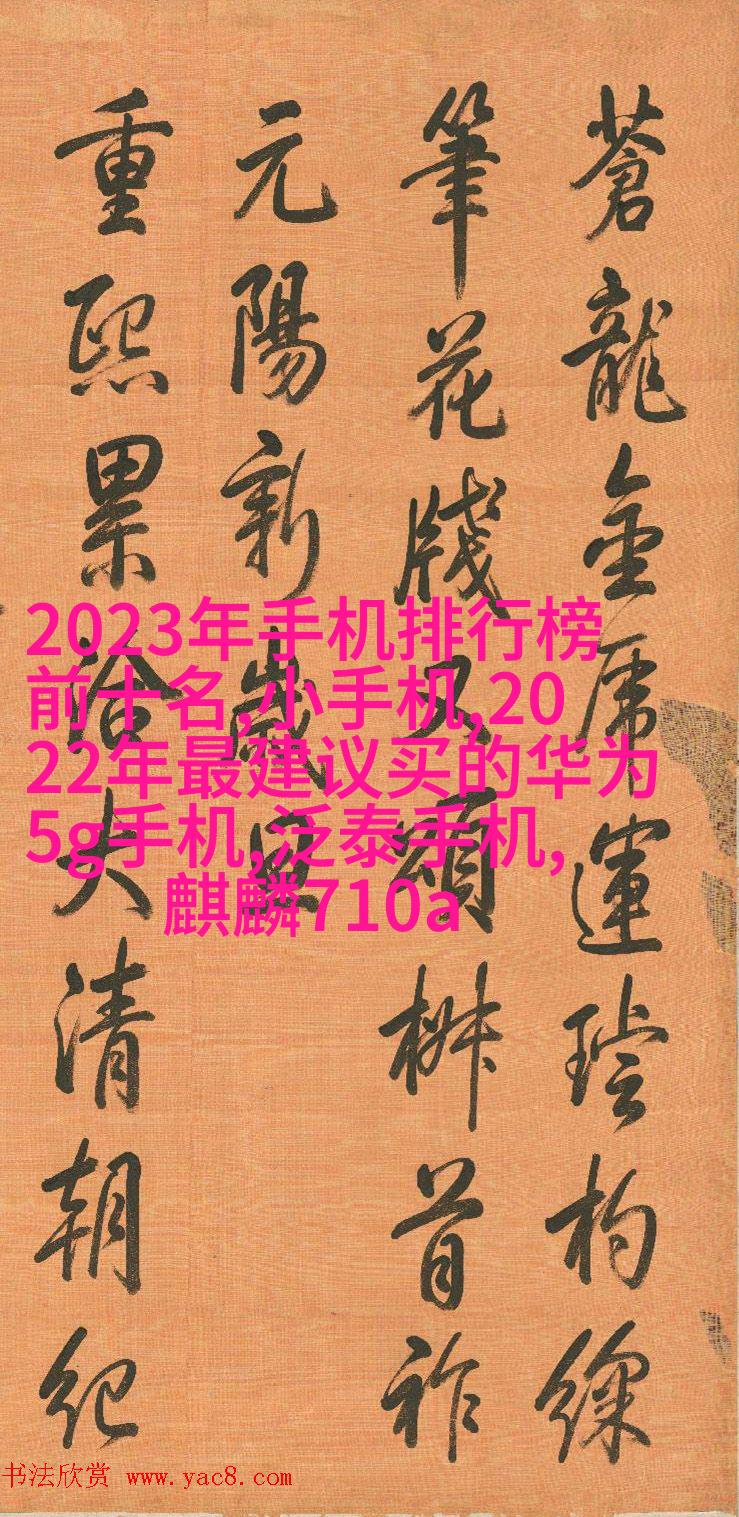 蒼龍金虎運杓
筆花牋又頌椒首祚
元陽新歲
重熙累洽大清朝紀
2023年手机排行榜
前十名,小手机,20
22年最建议买的华为
5g手机,泛泰手机,
麒麟710a
书法欣赏 www.yac8.com